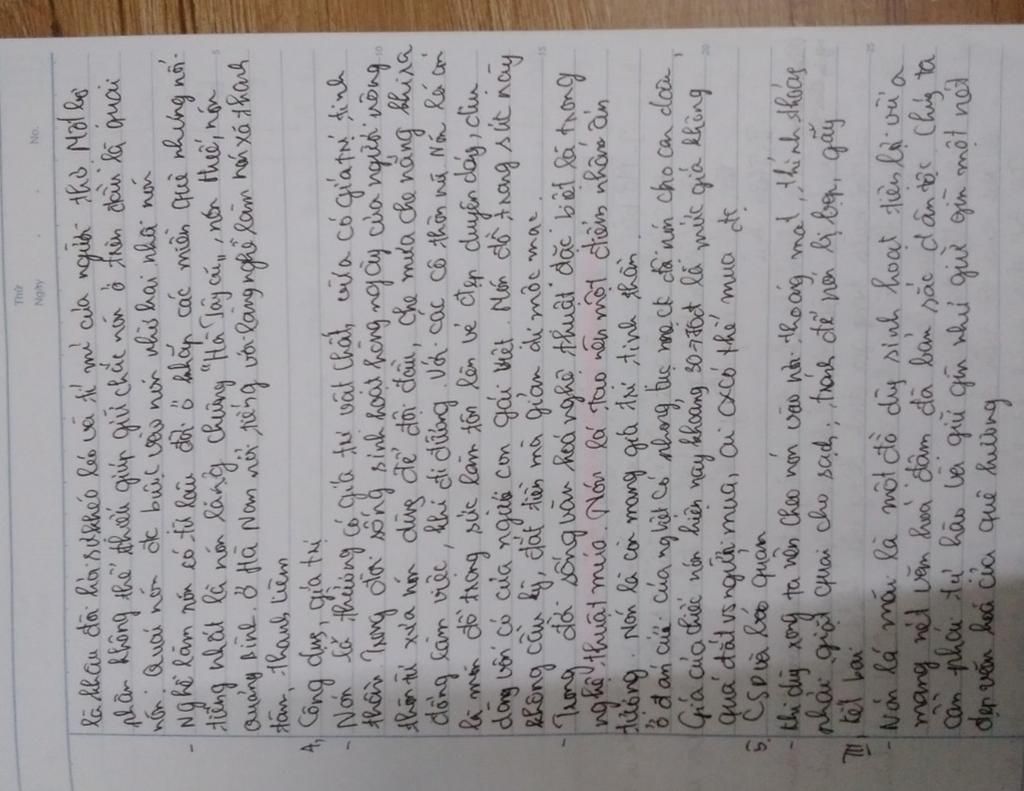 Thứ
Ngày
No.
là khâu đòi hỏi sự khéo léo và tỉ mỉ của người thợ. Một bộ
phận không thể thiếu giúp giữ chắc nón ở trên đầu là quai
nón. Quai nón đc buộc vào nón nhờ hai nhôi nón
- Nghề làm nón có từ lâu đời ở khắp các miền quê nhưng nổi
tiếng nhất là nón làng chuông "Hà Tây cũ", nón Huế, nón
Quảng Bình. Ở Hà Nam nổi tiếng với làng nghề làm nón xã thanh
tâm, thanh liêm
4, Công dụng, giá trị
- Nón lá thường có giá trị vật chất, vừa có giá trị tinh
thần. Trong đời sống sinh hoạt hằng ngày của người nông
thôn từ xưa nón dùng để đội đầu, che mưa che nắng khi ra
đồng làm việc, khi đi đường. Với các cô thôn nữ nón lá còn
là món đồ trang sức làm tôn lên vẻ đẹp duyên dáng, dịu
dàng vốn có của người con gái Việt. Món đồ trang sức này
không cầu kỳ, đắt tiền mà giản dị mộc mạc.
- Trong đời sống văn hoá nghệ thuật đặc biệt là trong
nghệ thuật múa. Nón lá tạo nên một điểm nhấn ấn
tượng. Nón lá còn mang giá trị tinh thần
ở đám cưới của người việt có phong tục mẹ đội nón cho con dâu,
Giá của chiếc nón hiện nay khoảng 30-70đ là mức giá không
quá đắt vs người mua, ai cx có thể mua đc
5, CSD và bảo quản
- Khi dùng xong ta nên treo nón vào nơi thoáng mát, thỉnh thoảng
phải giặt quai cho sạch, tránh để nón bị bẹp, gãy
III, kết bài
- Nón lá mãi là một đồ dùng sinh hoạt tiện lợi vừa
mang nét văn hoá đậm đà bản sắc dân tộc. Chúng ta
cần phải tự hào và giữ gìn như giữ gìn một nét
đẹp văn hoá của quê hương
5
10
15
20
25